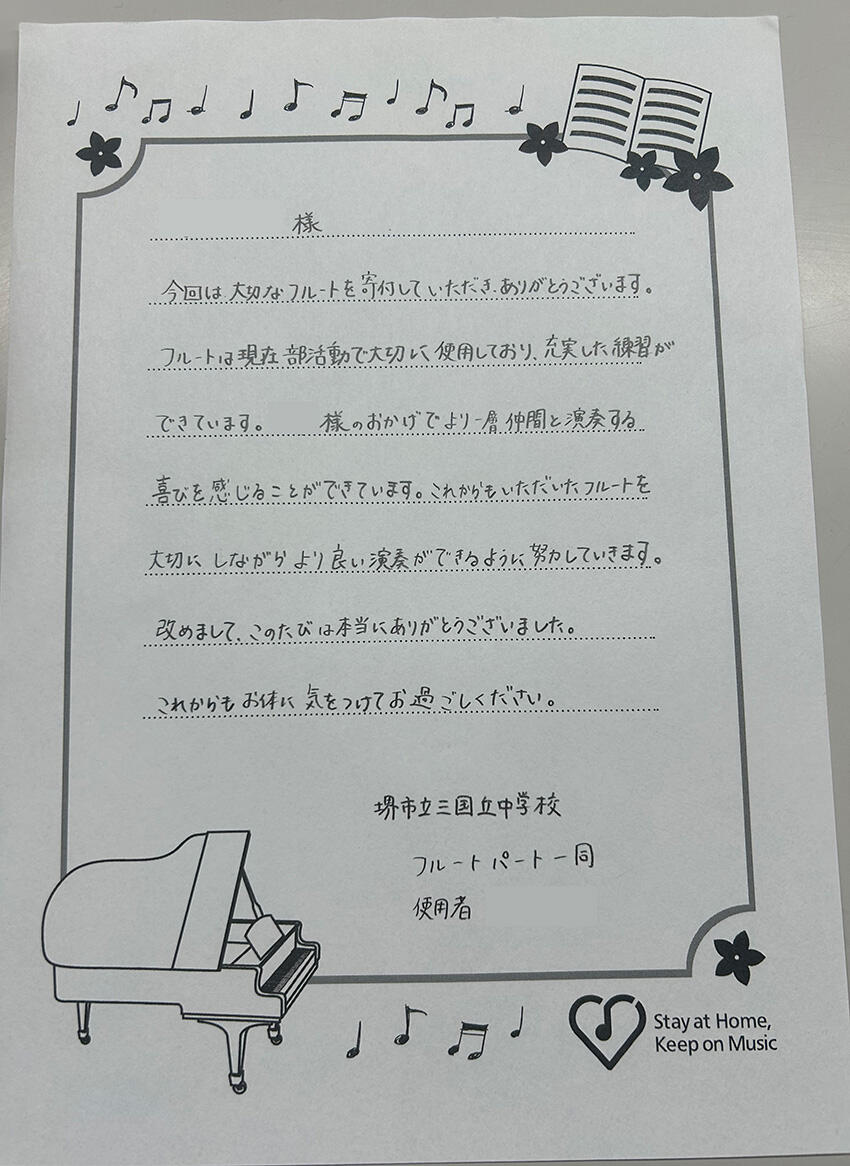 様
今回は大切なフルートを寄付していただき、ありがとうございます。
フルートは現在部活動で大切に使用しており、充実した練習が
できています。 様のおかげでより一層仲間と演奏する
喜びを感じることができています。これからもいただいたフルートを
大切にしながらより良い演奏ができるように努力していきます。
改めまして、このたびは本当にありがとうございました。
これからもお体に気をつけてお過ごしください。
堺市立三国丘中学校
フルートパート一同
使用者
Stay at Home,
Keep on Music